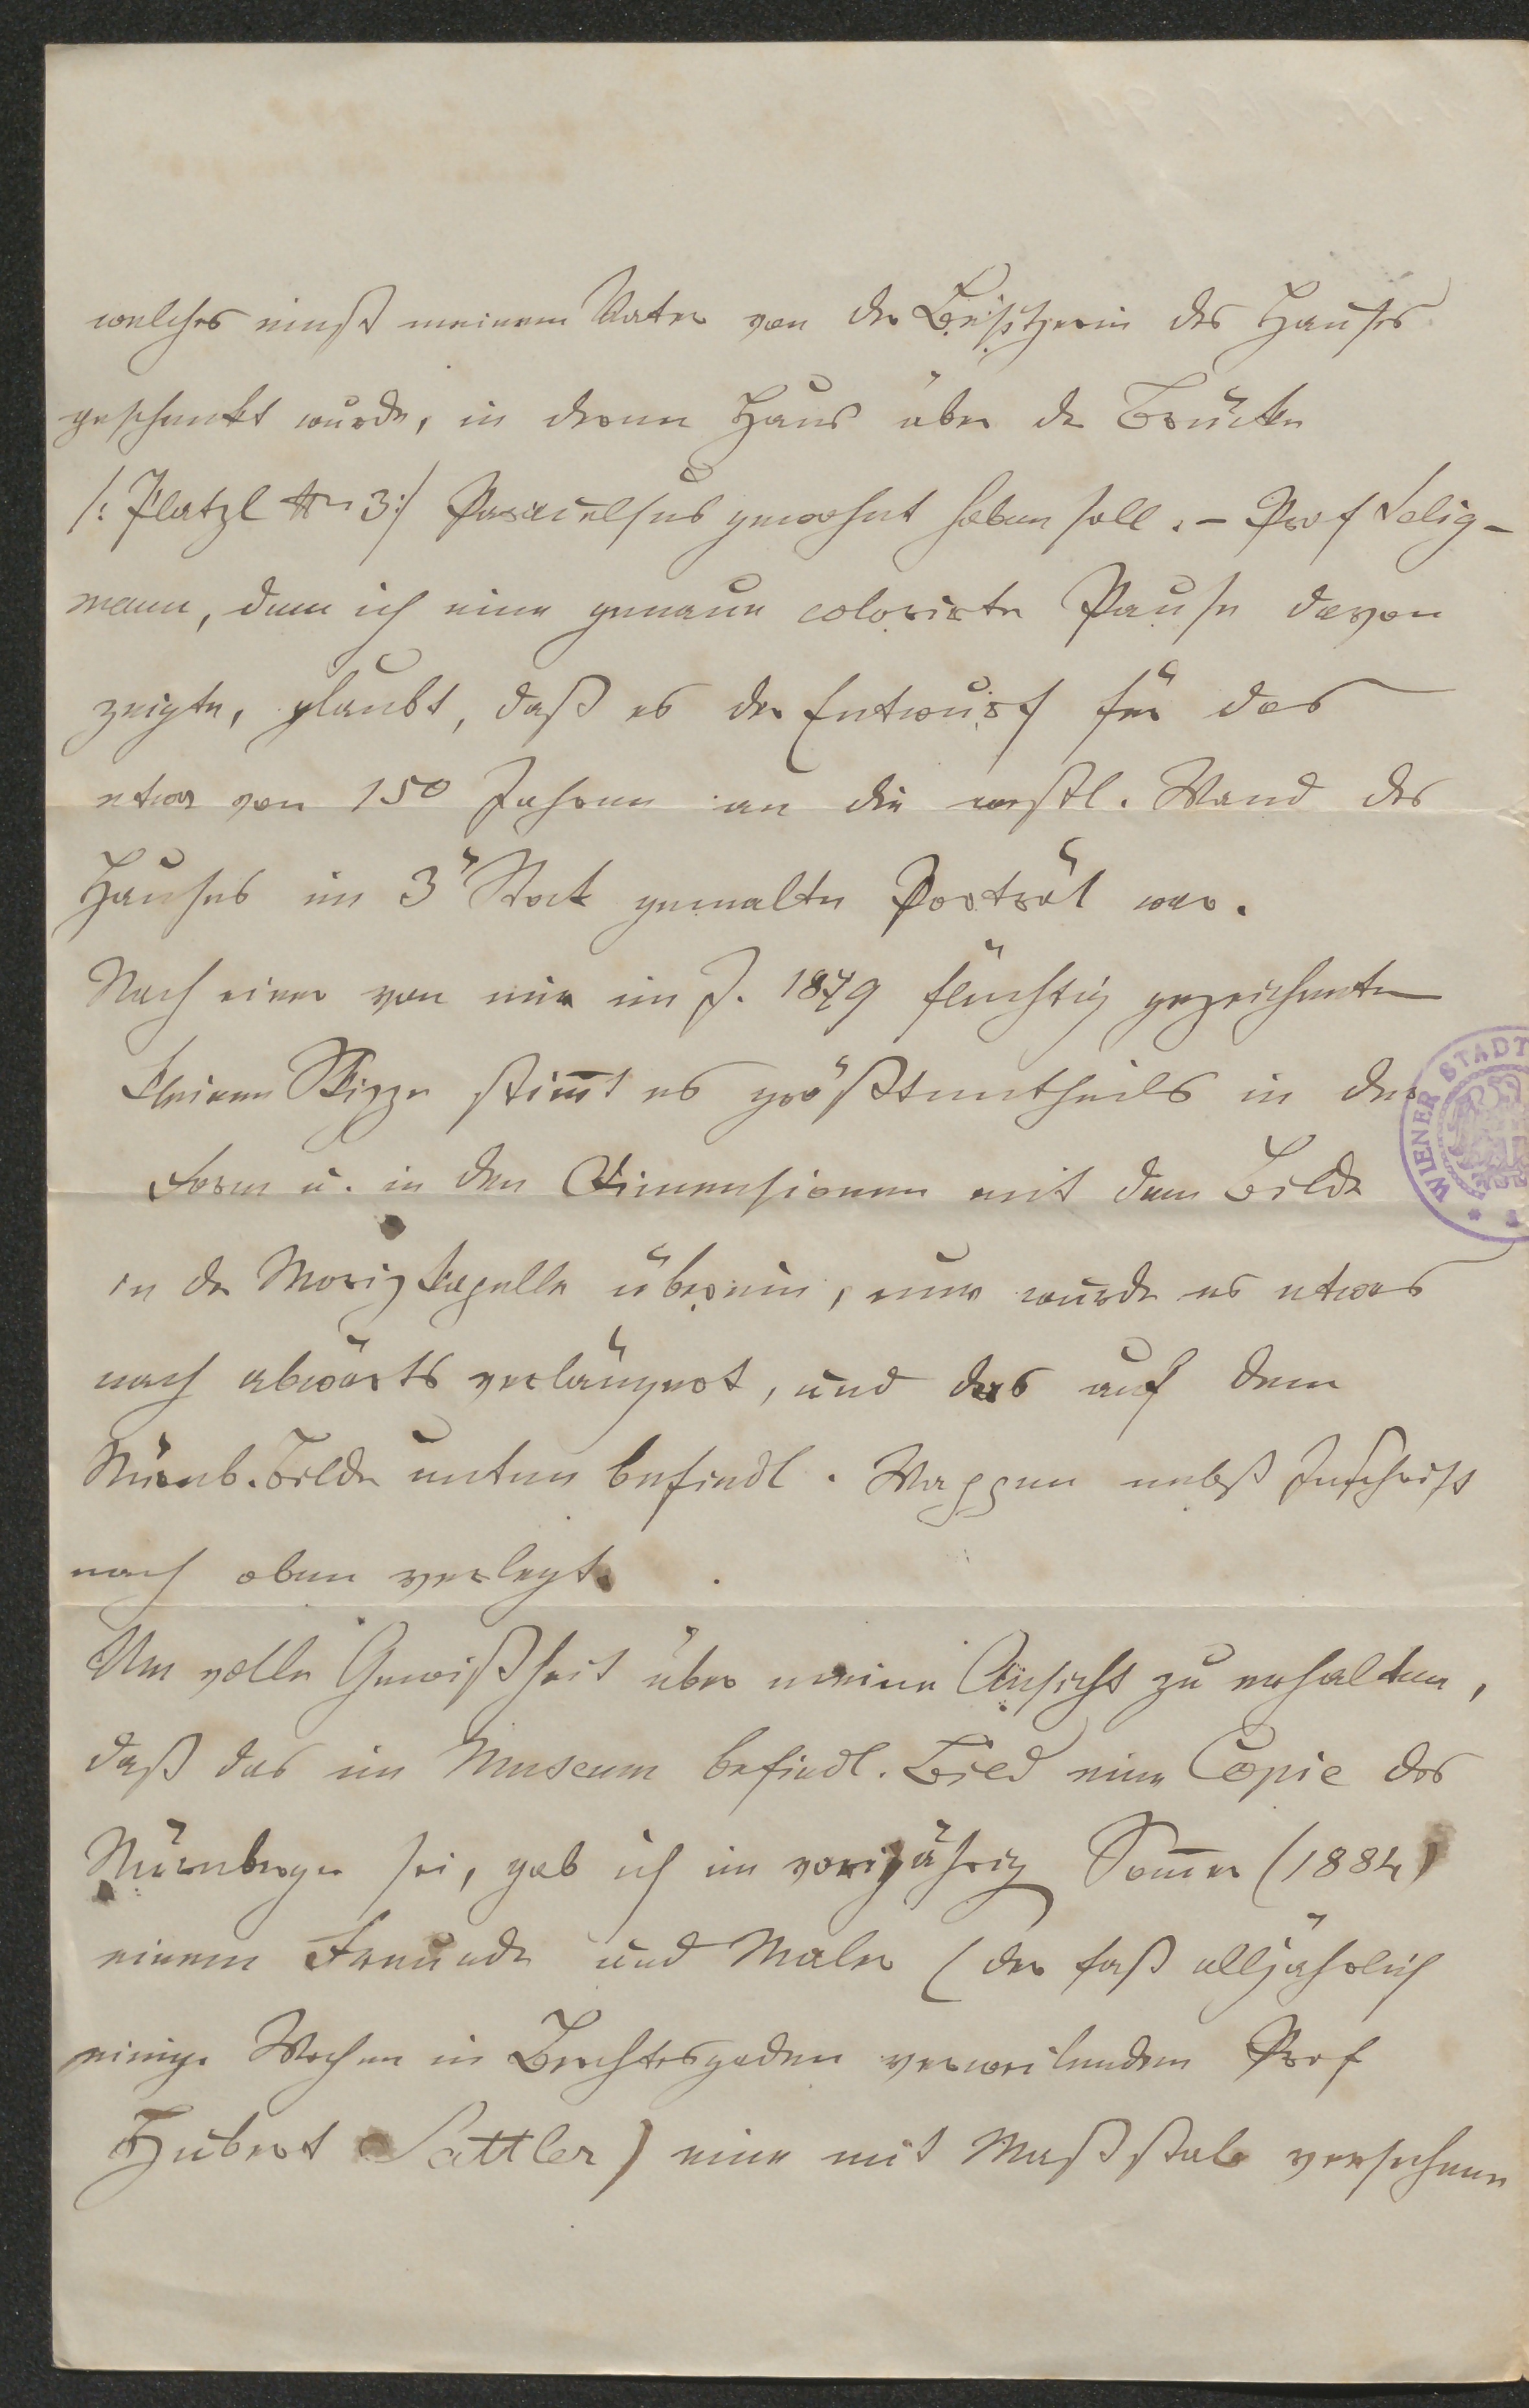 welches einst meinem Vater von der Besitzerin des Hauses
geschenkt wurde, in deren Haus über der Brücke
/: Platzl No 3 :/ Paracelsus gewohnt haben soll. – Prof Selig-
mann, dem ich eine genaue colorirte Pause davon
zeigte, glaubt, daß es der Entwurf für das
etwa vor 150 Jahren an die westl. Wand des
Hauses im 3t Stock gemalte Porträt war.
Nach einer von mir im J. 1879 flüchtig gezeichneten
kleinen Skizze stimt es größtentheils in der
Form u. in den Dimensionen mit dem Bilde
in der Morizkapelle überein, nur wurde es etwas
nach abwärts verlängert, und das auf dem
Nürnb. Bilde unten befindl. Wappen nebst Inschrift
nach oben verlegt.
Um volle Gewißheit über meine Ansicht zu erhalten,
daß das im Museum befindl. Bild eine Copie des
Nürnberger sei, gab ich im vorigjährig Somer (1884)
einem Freunde und Maler (der fast alljährlich
einige Wochen in Berchtesgaden verweilendem Prof
Hubert Sattler) eine mit Maßstab versehene
WIENER STADT